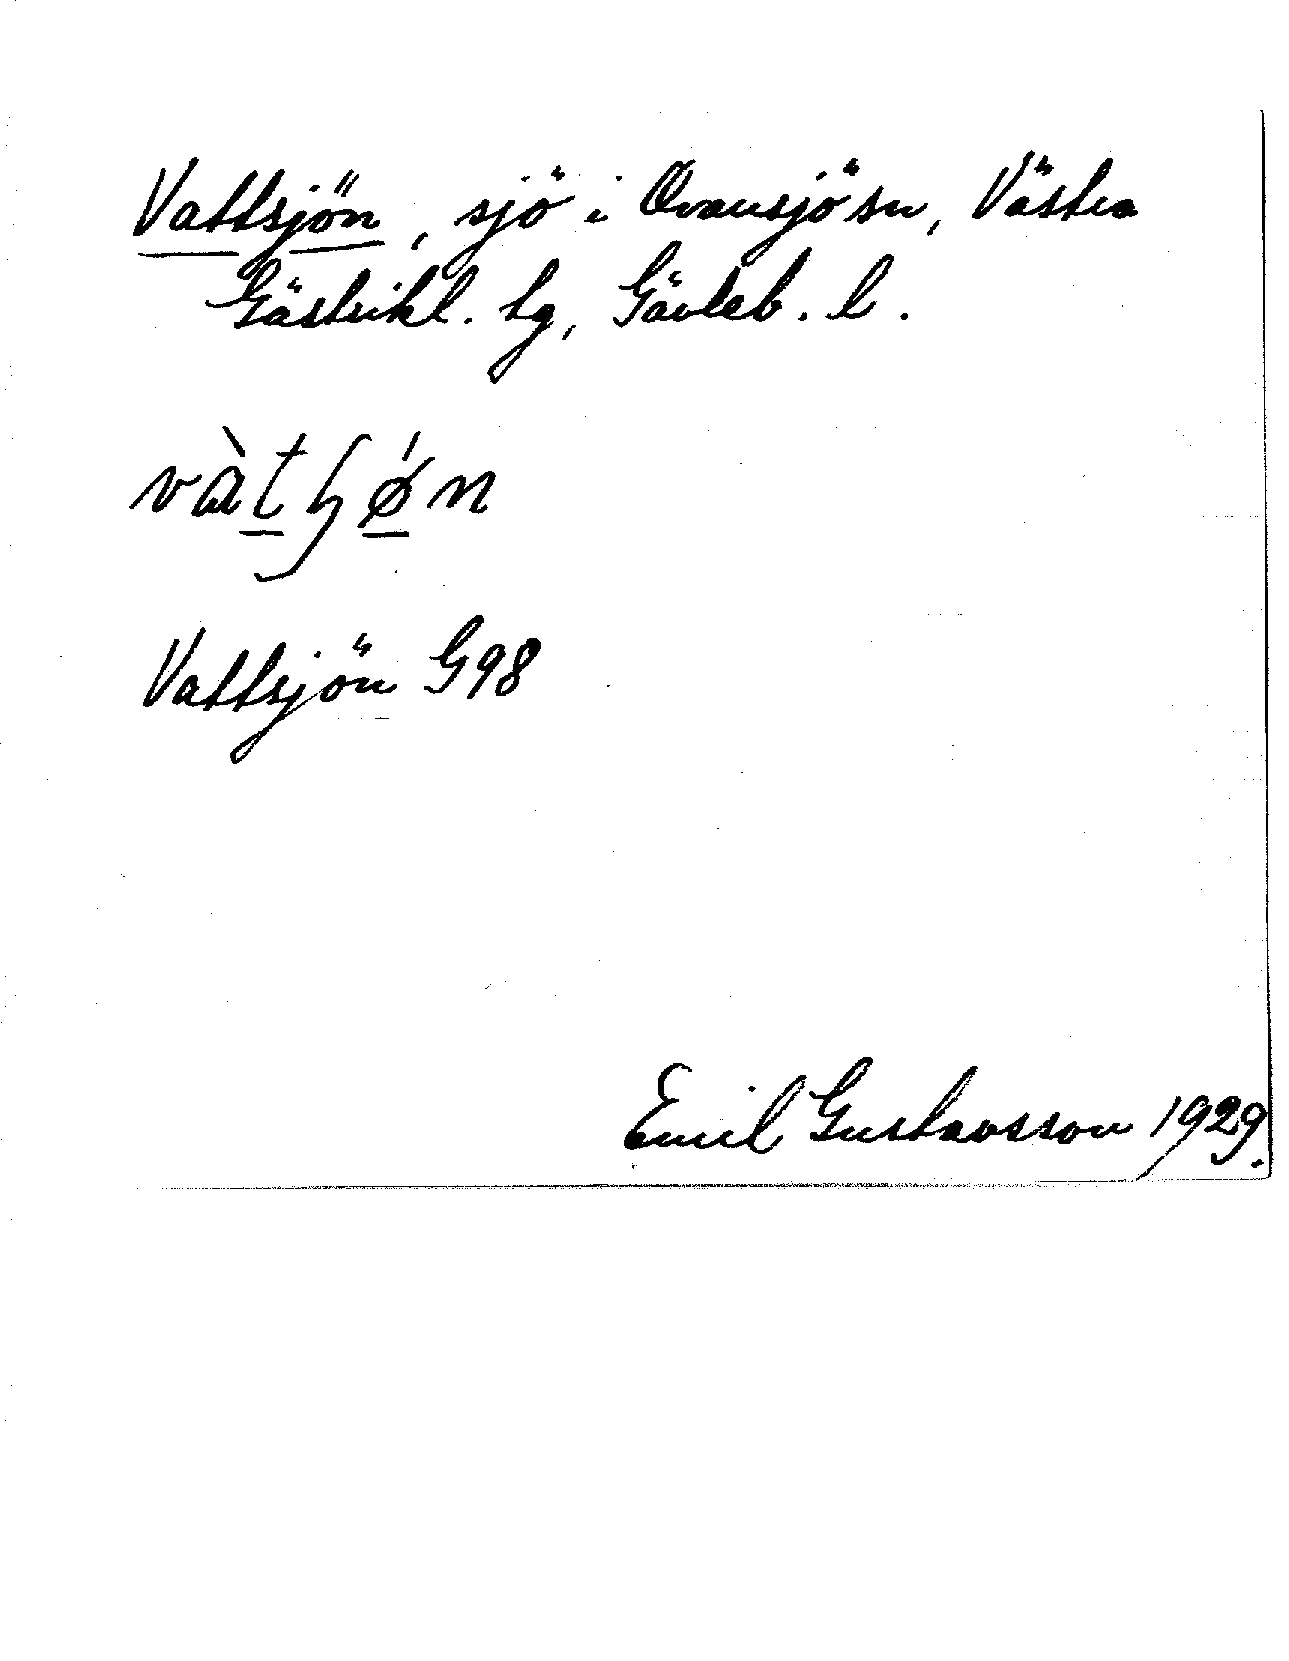 Vattsjön, sjö i Ovansjö sn, Västra
Gästrikl. tg, Gävleb. l.
vàtʃǿn
Vattsjön G98
Emil Gustavsson 1929.